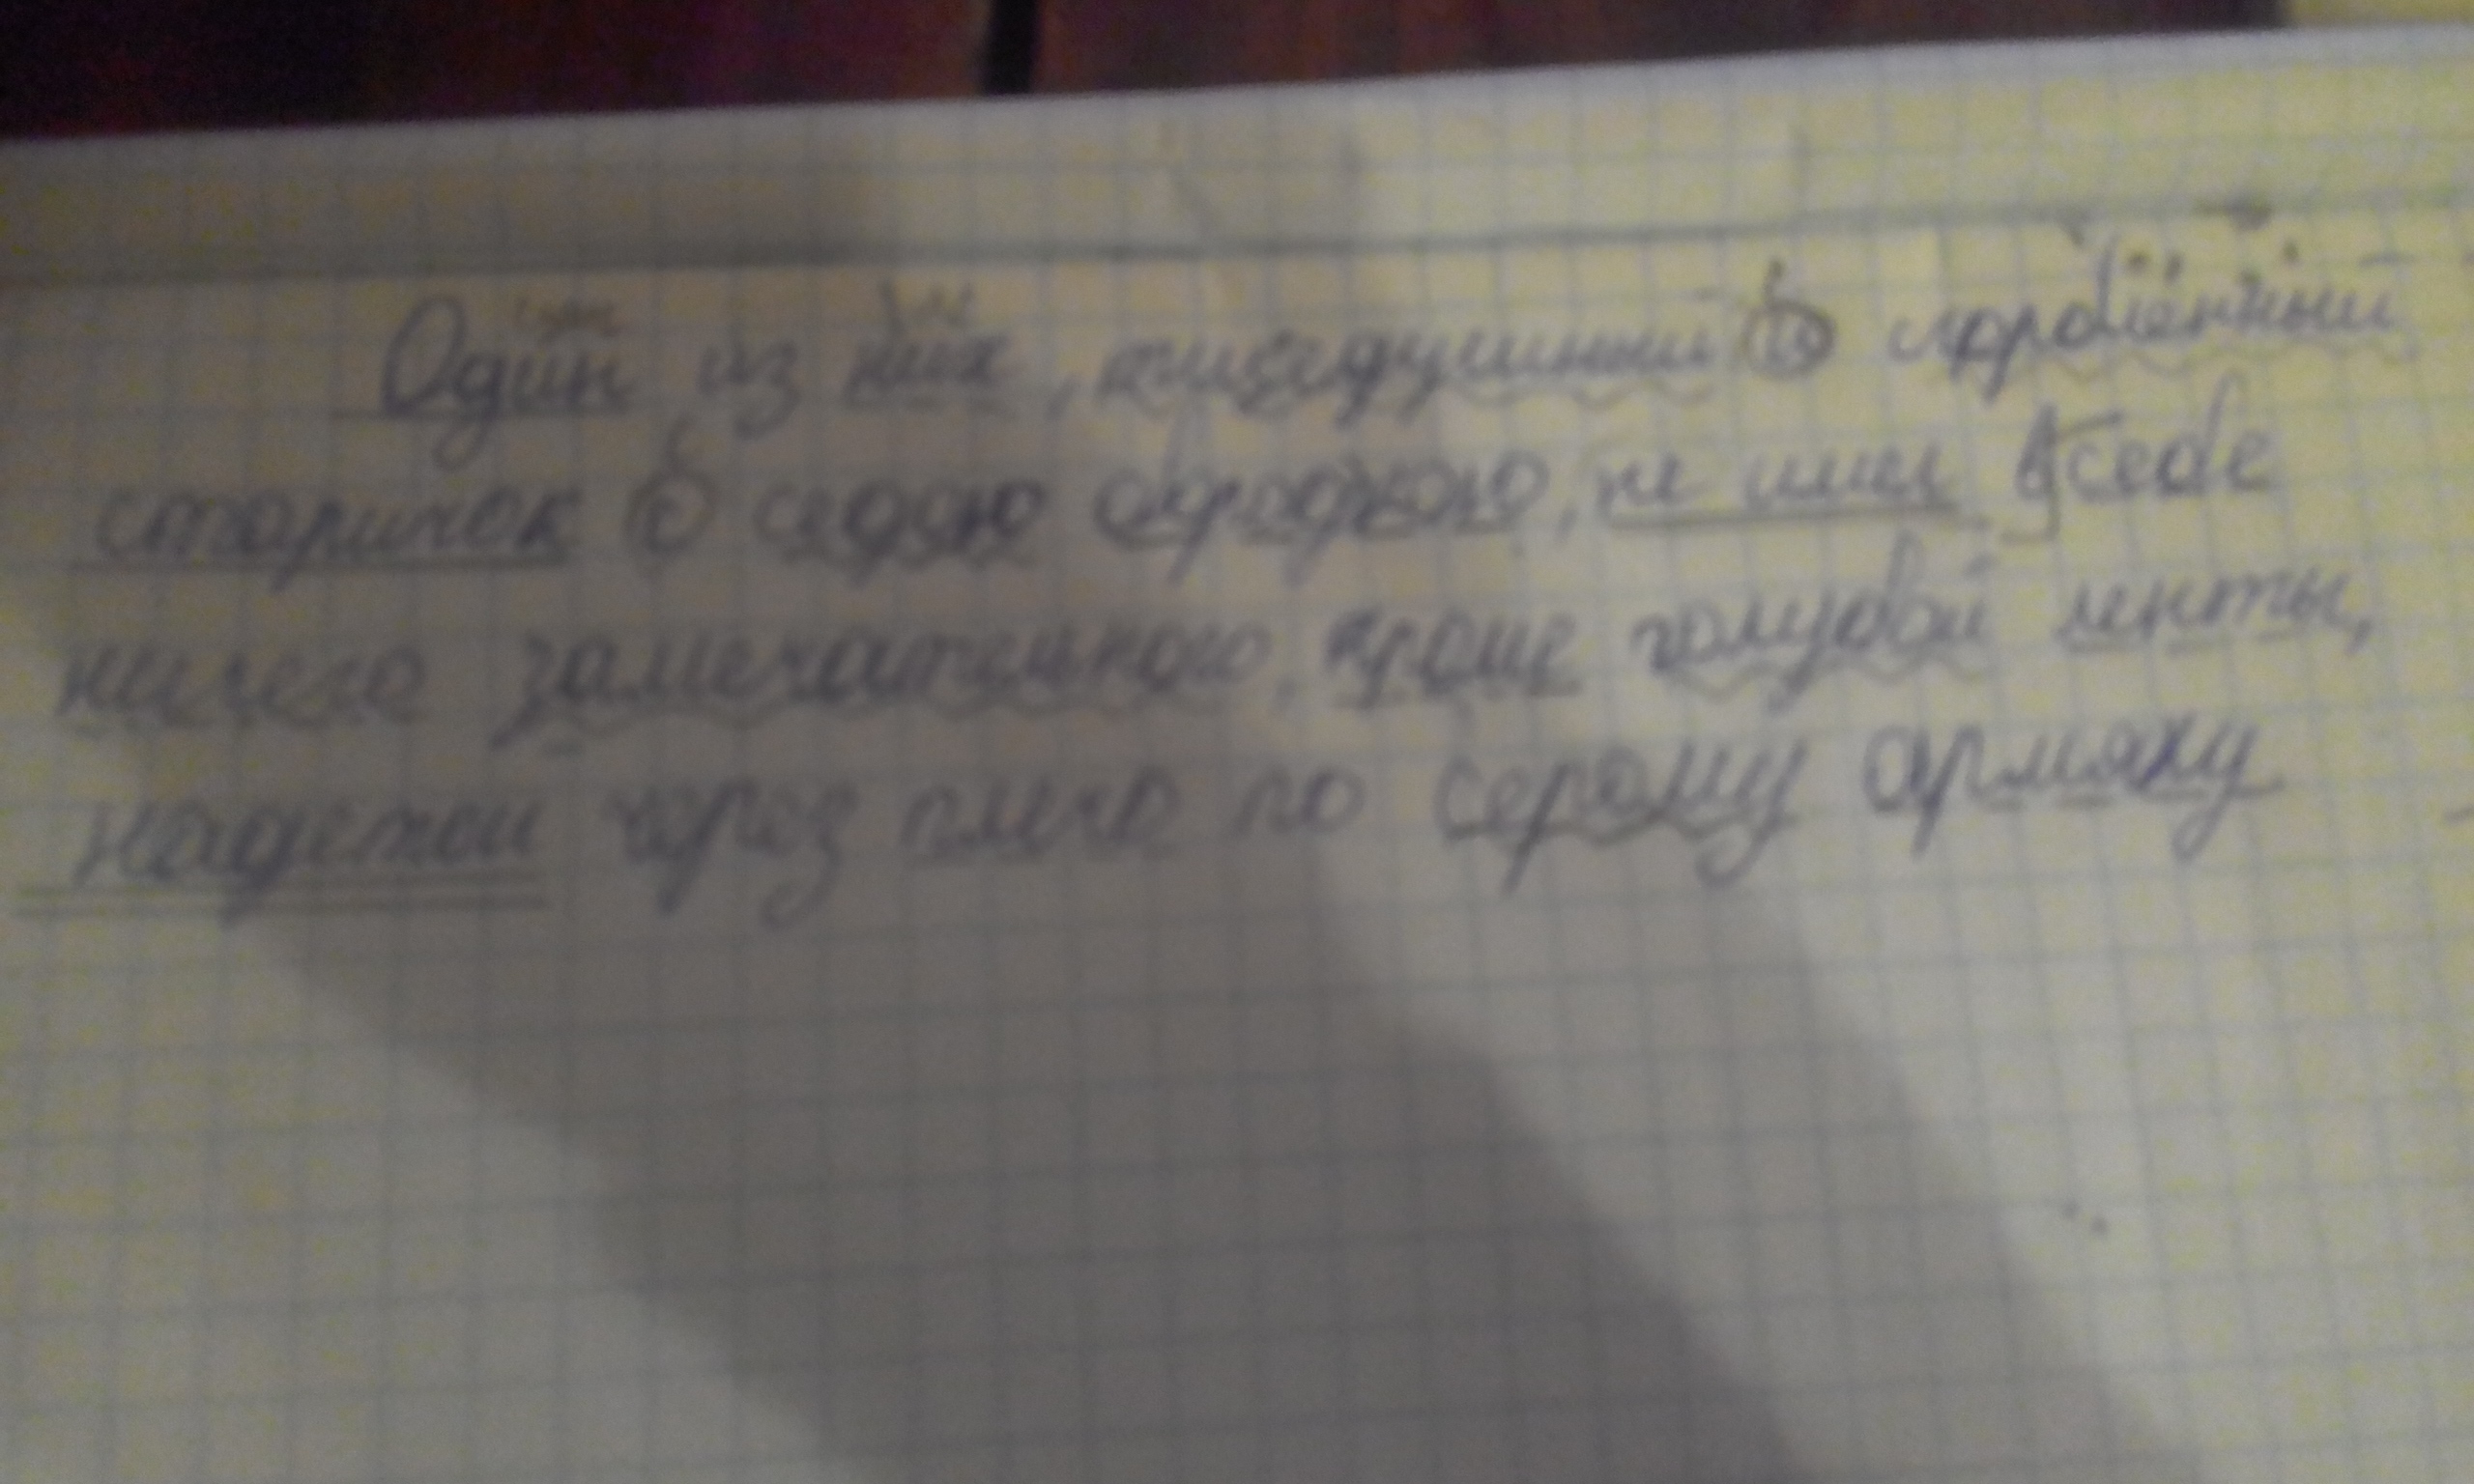 Один из них, тщедушный и сгорбленный
старичок с седою бородкою, не имел в себе
ничего замечательного, кроме голубой ленты,
надетой через плечо по серому армяку